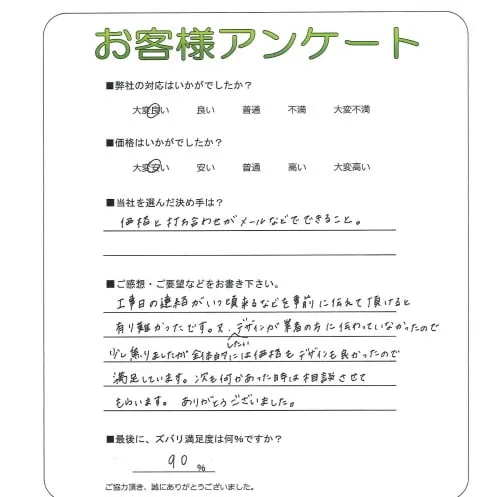 お客様アンケート
■弊社の対応はいかがでしたか？
大変良い　良い　普通　不満　大変不満
■価格はいかがでしたか？
大変安い　安い　普通　高い　大変高い
■当社を選んだ決め手は？
価格と打ち合わせがメールなどでできること。
■ご感想・ご要望などをお書き下さい。
工事日の連絡がいつ頃来るなどを事前に伝えて頂けると
有り難かったです。又、デザインが業者の方に伝わっていなかったので
したい
少し焦りましたが全体的には価格もデザインも良かったので
満足しています。次も何かあった時は相談させて
もらいます。ありがとうございました。
■最後に、ズバリ満足度は何％ですか？
90 %
ご協力頂き、誠にありがとうございました。